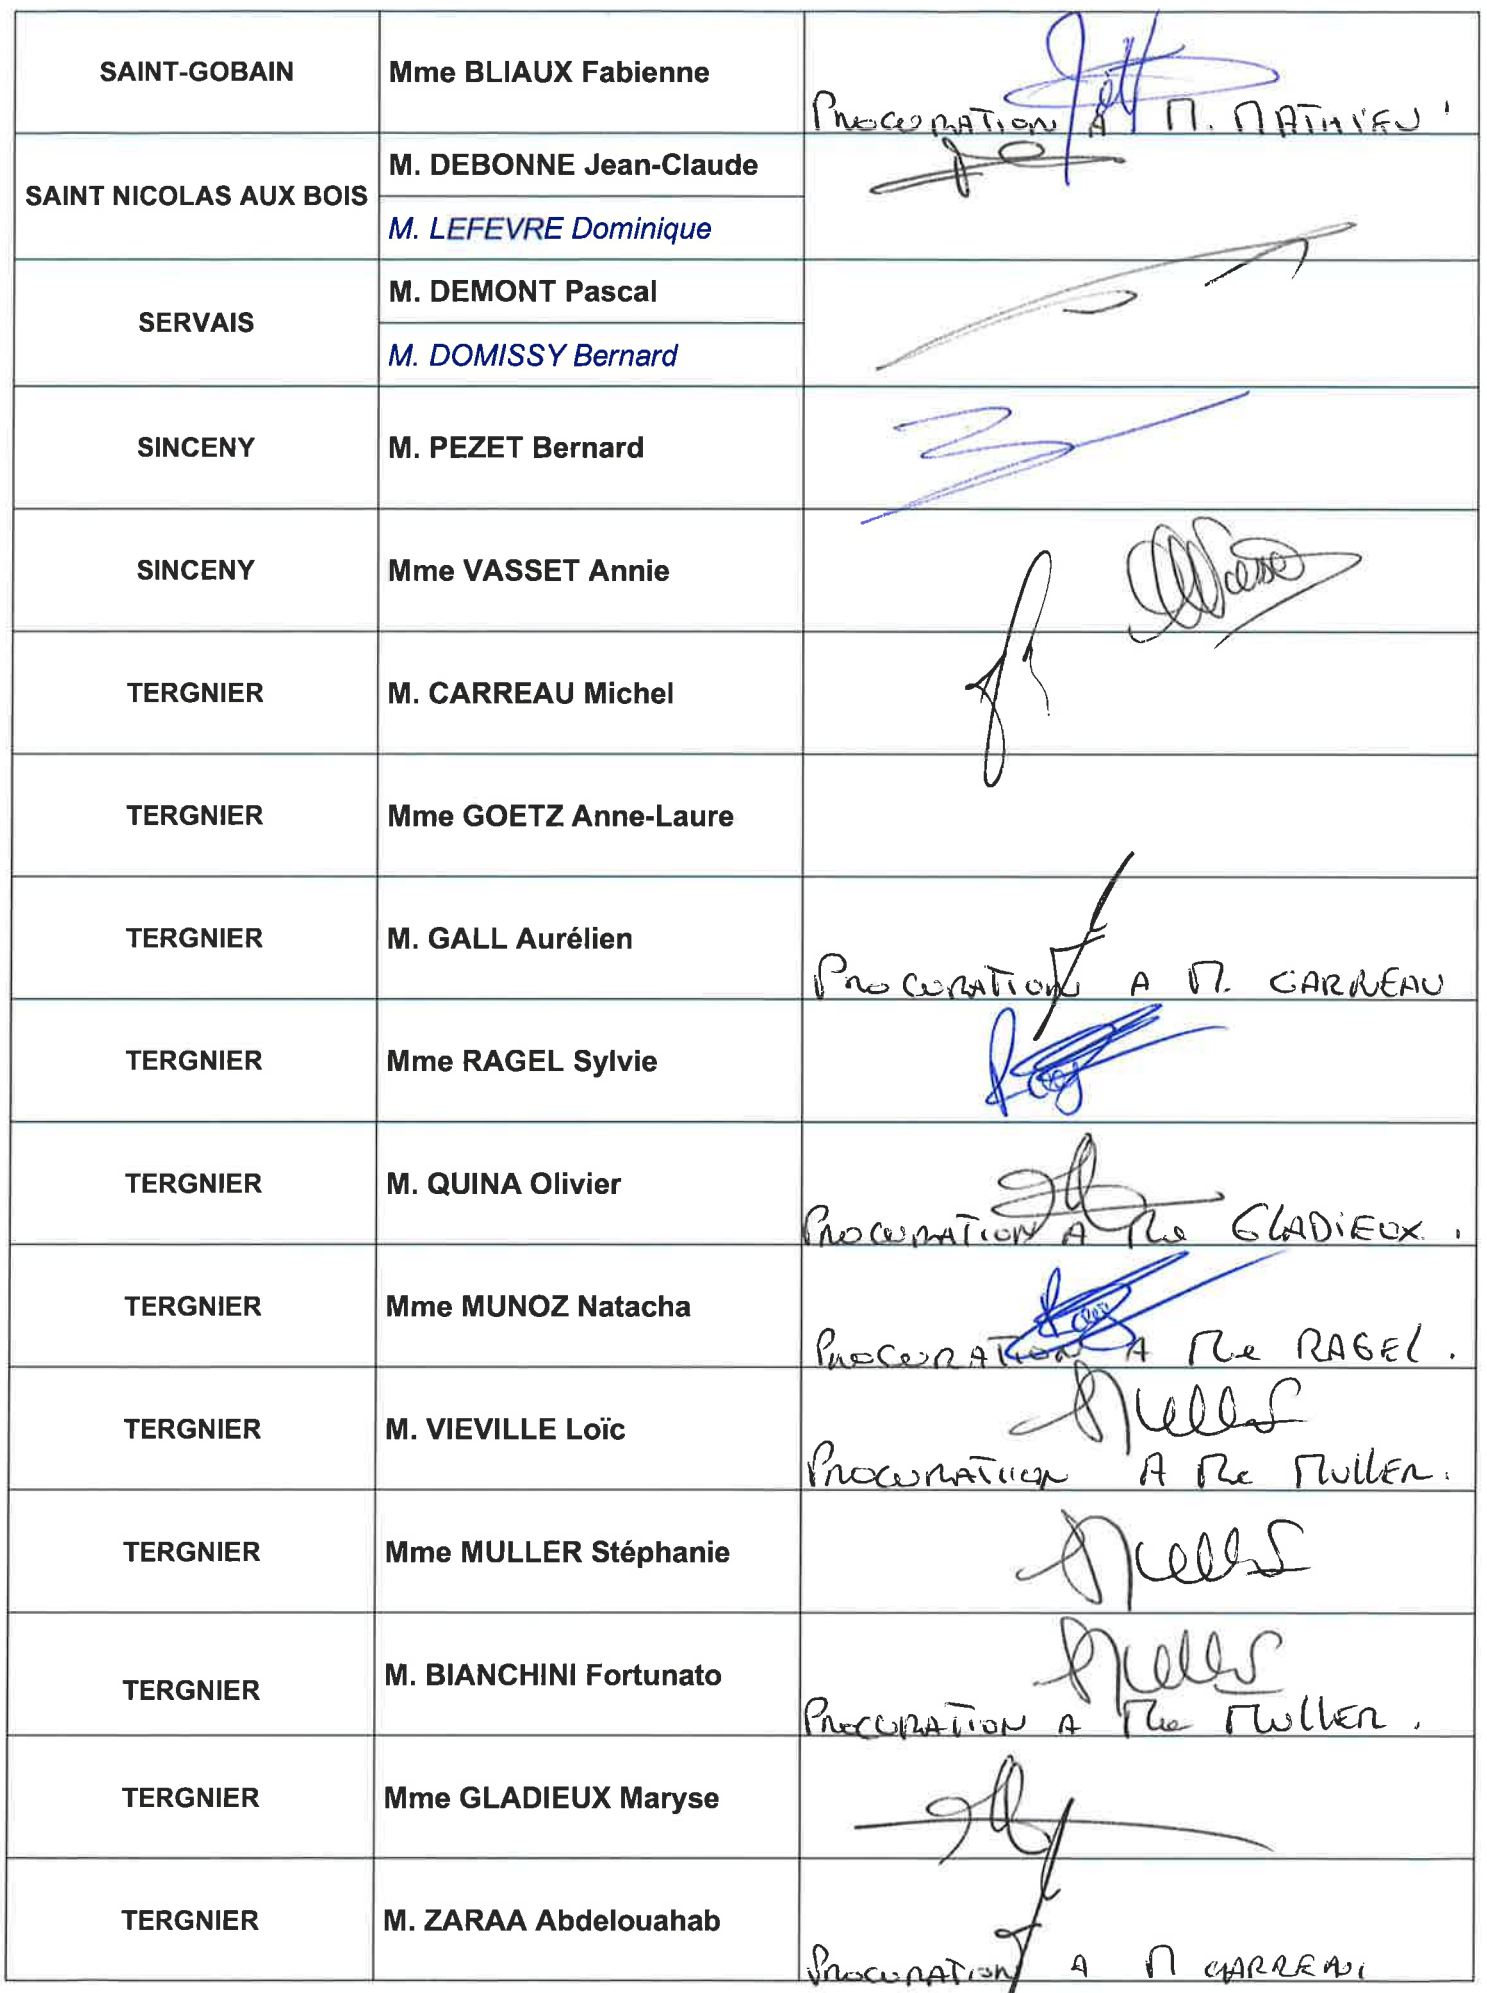 SAINT-GOBAIN
Mme BLIAUX Fabienne
PROCURATION A M. MATHIEU
SAINT NICOLAS AUX BOIS
M. DEBONNE Jean-Claude
M. LEFEVRE Dominique
SERVAIS
M. DEMONT Pascal
M. DOMISSY Bernard
SINCENY
M. PEZET Bernard
SINCENY
Mme VASSET Annie
TERGNIER
M. CARREAU Michel
TERGNIER
Mme GOETZ Anne-Laure
TERGNIER
M. GALL Aurélien
PROCURATION A M. CARREAU
TERGNIER
Mme RAGEL Sylvie
TERGNIER
M. QUINA Olivier
PROCURATION A Me GLADIEUX.
TERGNIER
Mme MUNOZ Natacha
PROCURATION A Me RAGEL.
TERGNIER
M. VIEVILLE Loïc
Muller
PROCURATION A Me MULLER.
TERGNIER
Mme MULLER Stéphanie
Muller
TERGNIER
M. BIANCHINI Fortunato
Muller
PROCURATION A Me MULLER.
TERGNIER
Mme GLADIEUX Maryse
TERGNIER
M. ZARAA Abdelouahab
PROCURATION A M CARREAU